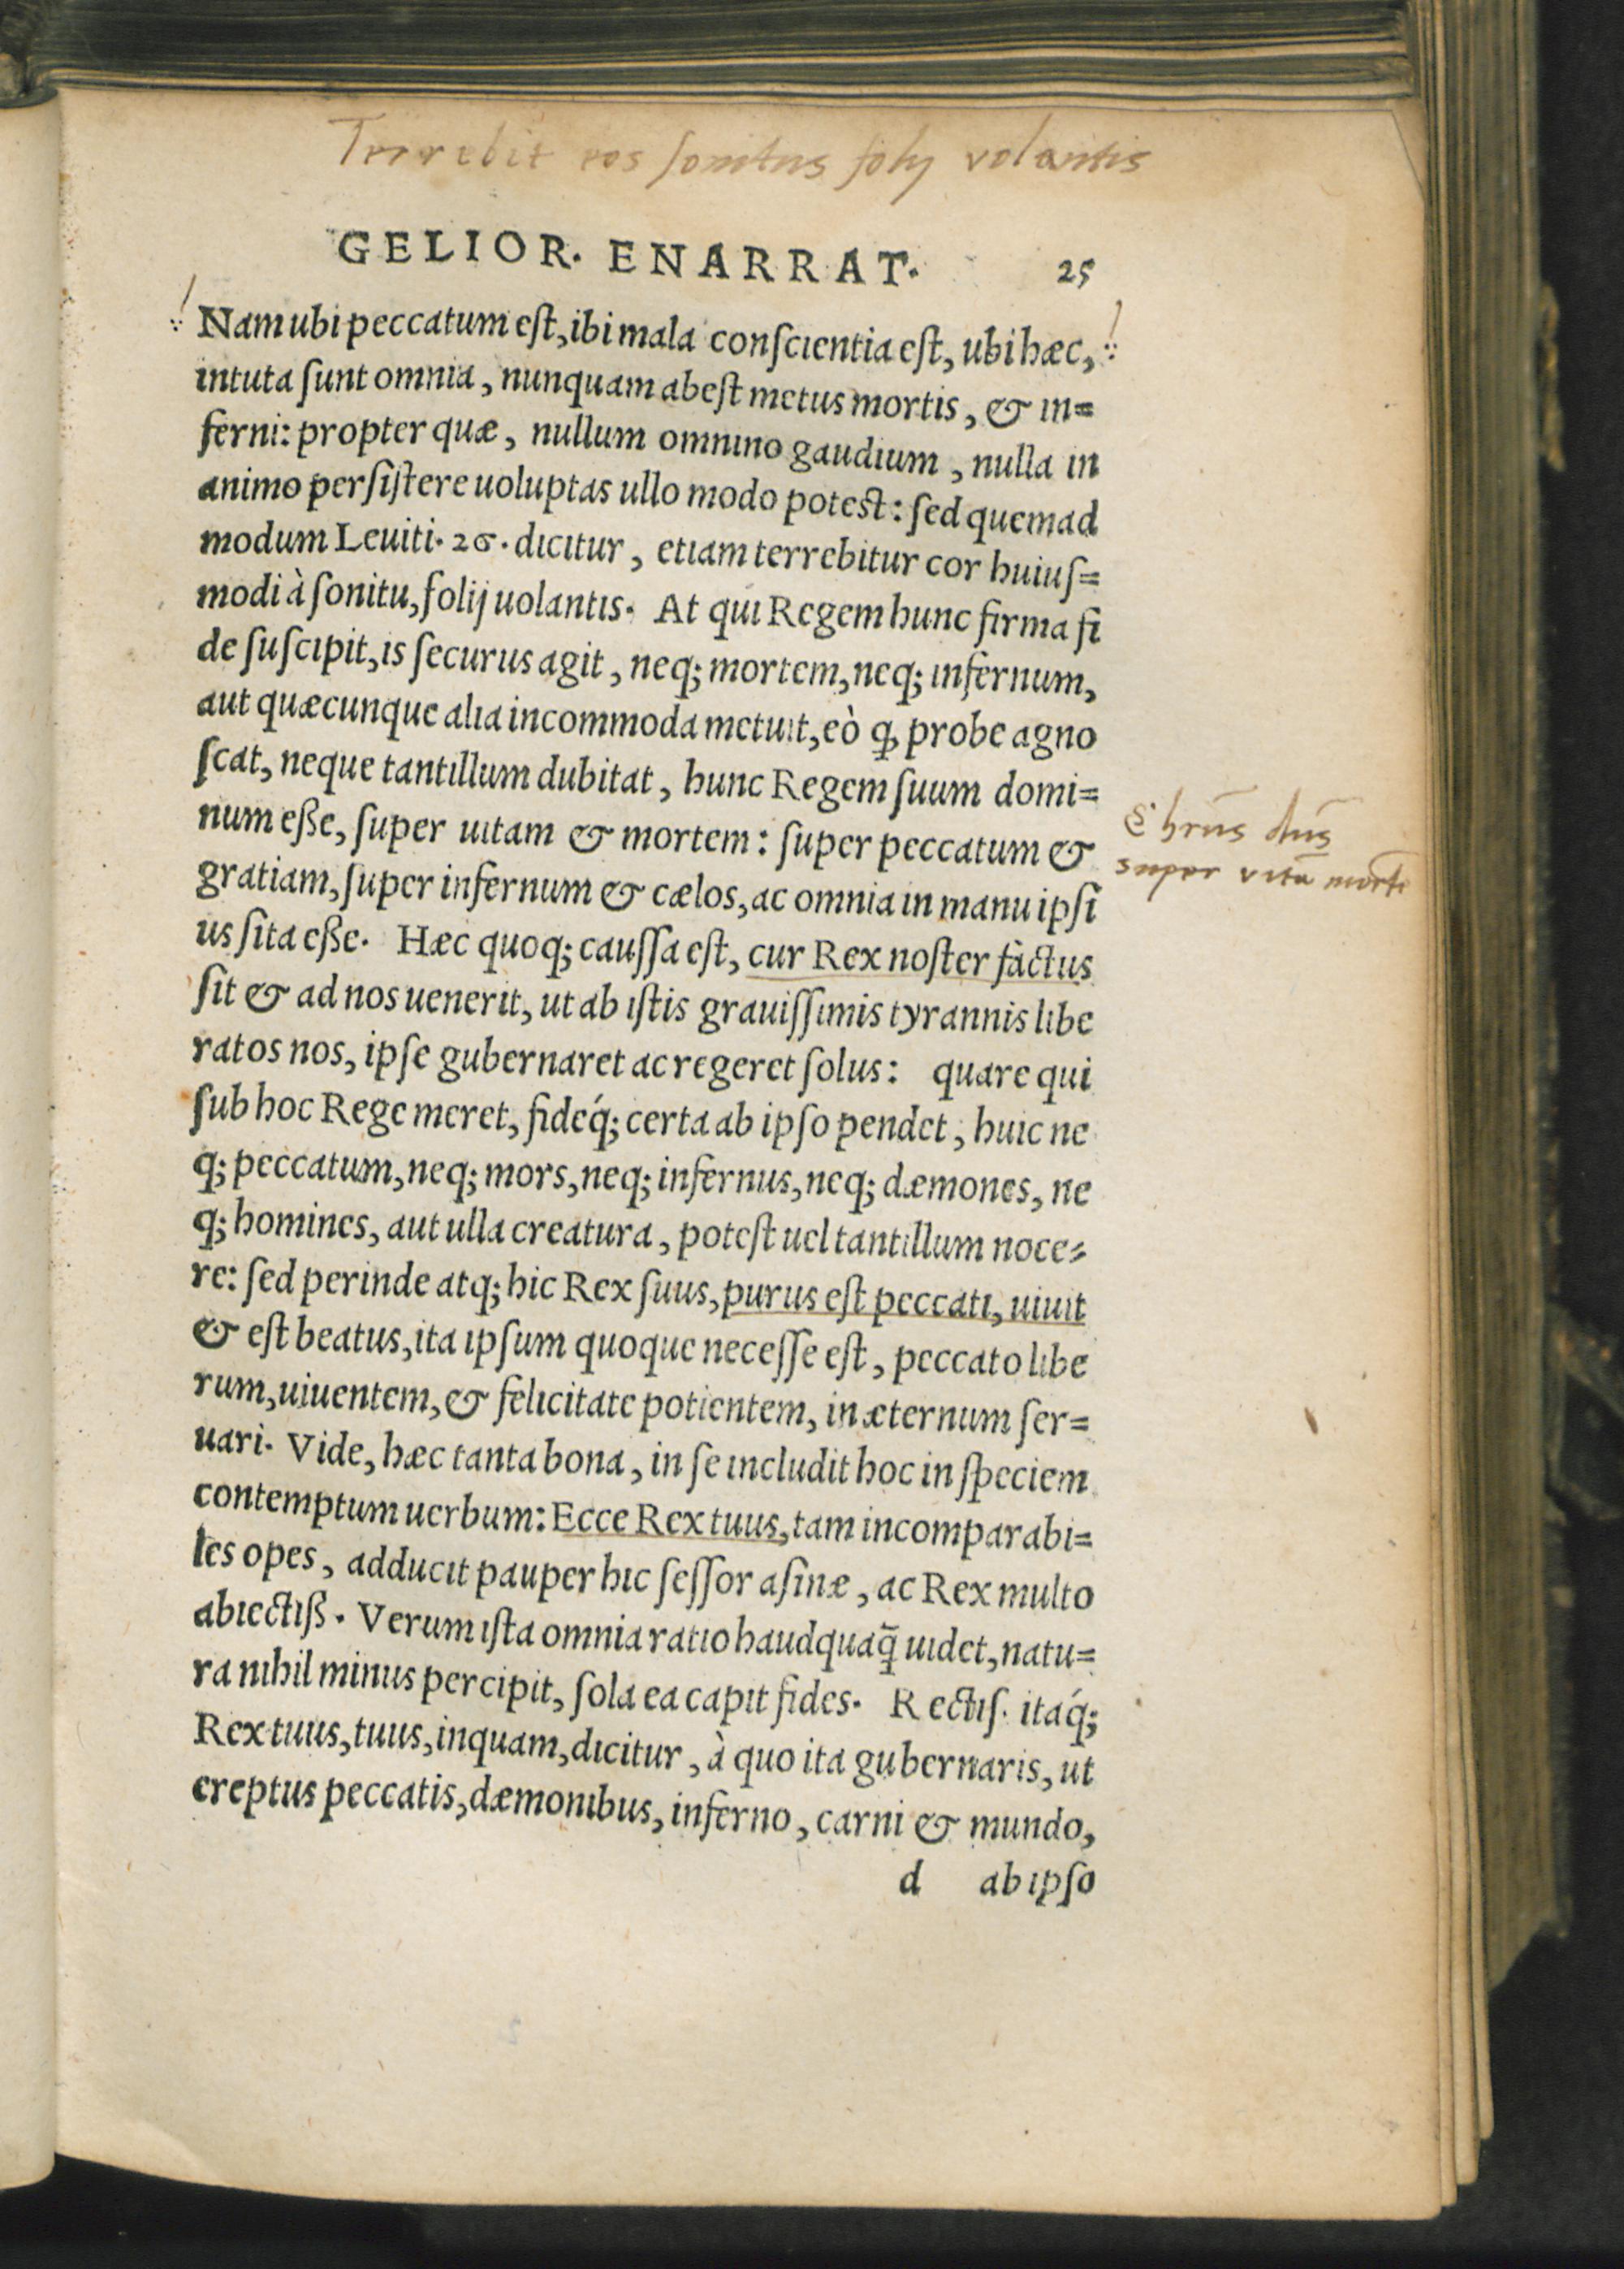 Terrebit eos sonitus folij volantis
GELIOR. ENARRAT. 25
Nam ubi peccatum eſt, ibi mala conſcientia eſt, ubi hæc,
intuta ſunt omnia, nunquam abeſt metus mortis, & in=
ferni: propter quæ, nullum omnino gaudium, nulla in
animo perſiſtere uoluptas ullo modo poteſt: ſed quemad
modum Leuiti. 26. dicitur, etiam terrebitur cor huiuſ=
modi à ſonitu, folij uolantis. At qui Regem hunc firma fi
de ſuſcipit, is ſecurus agit, neq; mortem, neq; infernum,
aut quæcunque alia incommoda metuit, eò ꝙ probe agno
ſcat, neque tantillum dubitat, hunc Regem ſuum domi=
num eſſe, ſuper uitam & mortem: ſuper peccatum &
gratiam, ſuper infernum & cælos, ac omnia in manu ipſi
us ſita eſſe. Hæc quoq; cauſſa eſt, cur Rex noſter factus
ſit & ad nos uenerit, ut ab iſtis grauiſſimis tyrannis libe
ratos nos, ipſe gubernaret ac regeret ſolus: quare qui
ſub hoc Rege meret, fideq́; certa ab ipſo pendet, huic ne
q; peccatum, neq; mors, neq; infernus, neq; dæmones, ne
q; homines, aut ulla creatura, poteſt uel tantillum noce=
re: ſed perinde atq; hic Rex ſuus, purus eſt peccati, uiuit
& eſt beatus, ita ipſum quoque neceſſe eſt, peccato libe
rum, uiuentem, & felicitate potientem, in æternum ſer=
uari. Vide, hæc tanta bona, in ſe includit hoc in ſpeciem
contemptum uerbum: Ecce Rex tuus, tam incomparabi=
les opes, adducit pauper hic ſeſſor aſinæ, ac Rex multo
abiectiß. Verum iſta omnia ratio haudquaq̃ uidet, natu=
ra nihil minus percipit, ſola ea capit fides. Rectiſ. itaq́;
Rex tuus, tuus, inquam, dicitur, à quo ita gubernaris, ut
ereptus peccatis, dæmonibus, inferno, carni & mundo,
d ab ipſo
Chrūs dn̄s
super vitā mortē